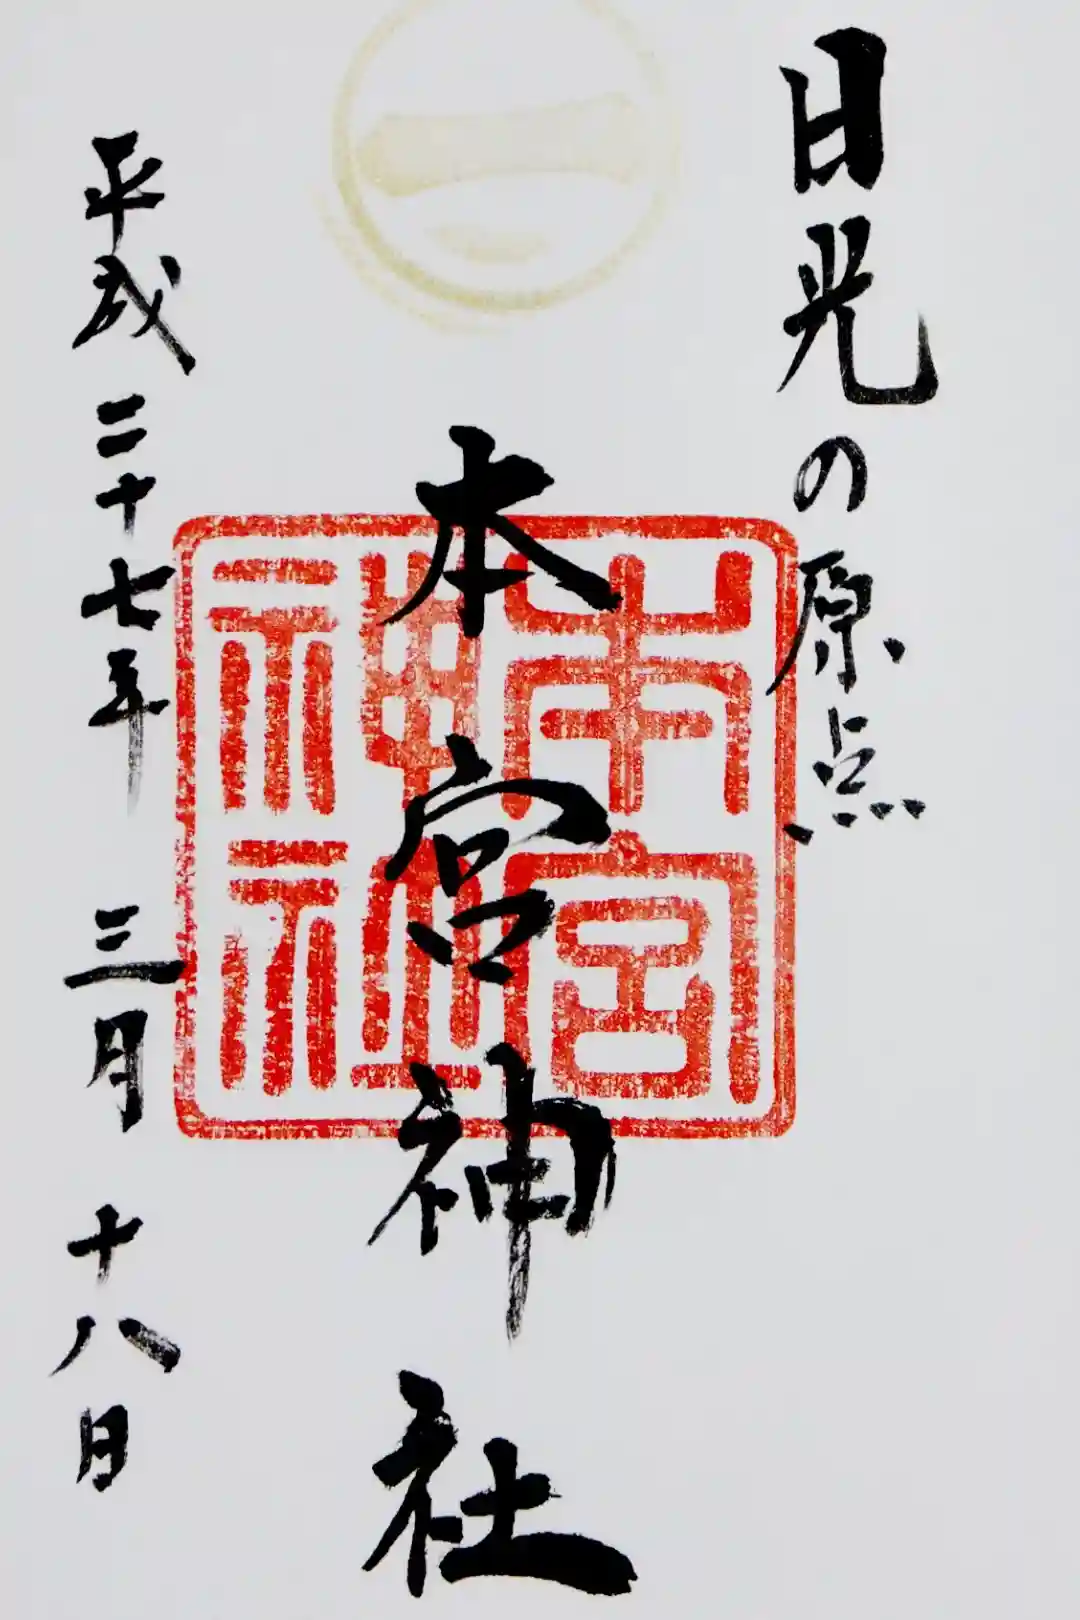 日光の原点
本宮神社
本宮神社
平成二十七年 三月 十八日